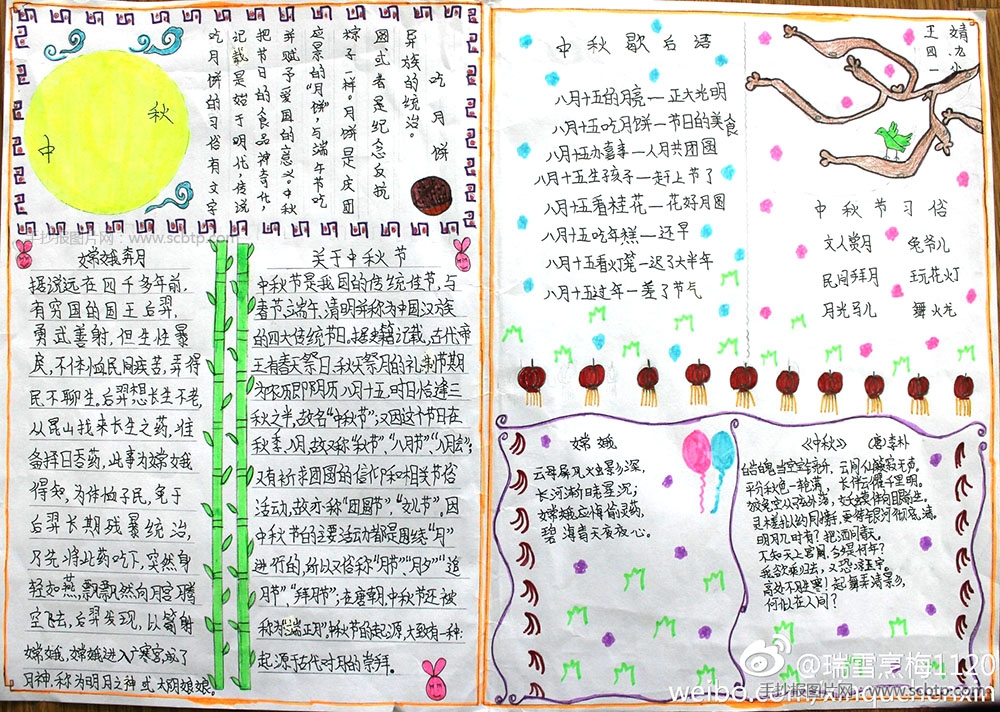 中
秋
吃月饼
异族的统治。
图式者是纪念反抗
粽子一样。月饼是庆团
应景的“月饼”，与端午节吃
并赋予爱国的意义。中秋
把节日的食品神奇化，
记载是始于明代，传说
吃月饼的习俗有文字
手抄报图片网：www.scbtp.com
嫦娥奔月
据说远在四千多年前，
有穷国的国王后羿，
勇武善射，但生性暴
戾，不体恤民间疾苦，弄得
民不聊生。后羿想长生不老，
从昆山找来长生之药，准
备择日吞药，此事为嫦娥
得知，为体恤子民，免于
后羿长期残暴统治，
乃先将此药吃下，突然身
轻如燕，飘飘然向月宫腾
空飞去，后羿发现，以箭射
嫦娥，嫦娥进入广寒宫，成了
月神，称为明月之神或太阴娘娘。
关于中秋节
中秋节是我国的传统佳节，与
春节、端午、清明并称为中国汉族
的四大传统节日。据史籍记载，古代帝
王有春天祭日、秋天祭月的礼制，节期
为农历即阴历八月十五，时日恰逢三
秋之半，故名“中秋节”；又因这个节日在
秋季、八月，故又称“秋节”、“八月节”、“八月会”；
又有祈求团圆的信仰和相关节俗
活动，故亦称“团圆节”、“女儿节”。因
中秋节的主要活动都是围绕“月”
进行的，所以又俗称“月节”、“月夕”“追
月节”、“拜月节”；在唐朝，中秋节还被
称为“端正月”。中秋节的起源，大致有一种：
起源于古代对月的崇拜。
中秋歇后语
八月十五的月亮—正大光明
八月十五吃月饼—节日的美食
八月十五办喜事—人月共团圆
八月十五生孩子—赶上节了
八月十五看桂花—花好月圆
八月十五吃年糕—还早
八月十五看灯笼—迟了大半年
八月十五过年—差了节气
王婧
四九
一小
中秋节习俗
文人赏月 兔爷儿
民间拜月 玩花灯
月光马儿 舞火龙
嫦娥
云母屏风烛影深，
长河渐落晓星沉；
嫦娥应悔偷灵药，
碧海青天夜夜心。
《中秋》 (唐)李朴
皓魄当空宝镜升，云间仙籁寂无声。
平分秋色一轮满，长伴云衢千里明。
狡兔空从弦外落，妖蟆休向眼前生。
灵槎拟约同携手，更待银河彻底清。
明月几时有？把酒问青天。
不知天上宫阙，今夕是何年？
我欲乘风归去，又恐琼楼玉宇，
高处不胜寒！起舞弄清影，
何似在人间？
@瑞雪亮梅1120
weibo.com/xinquchenxin
手抄报图片网：www.scbtp.com